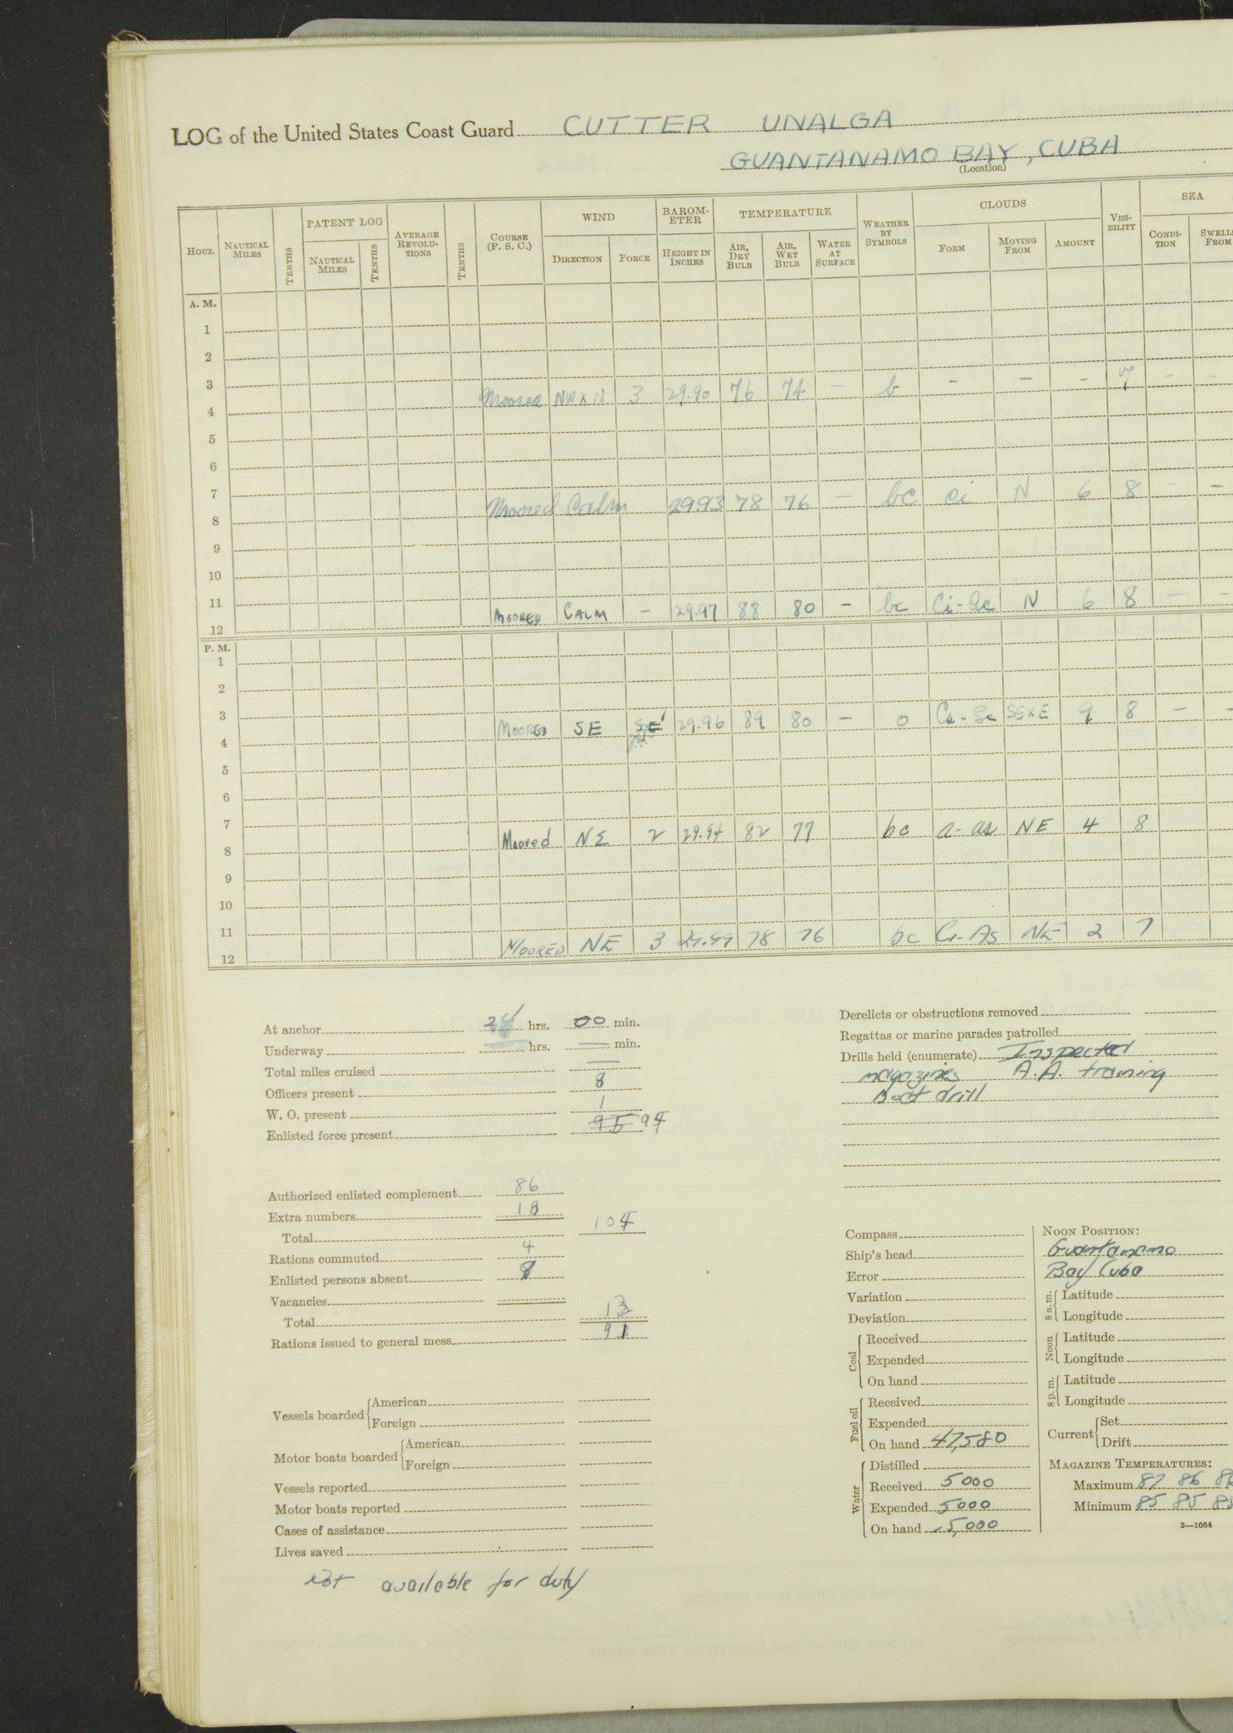 LOG of the United States Coast Guard CUTTER UNALGA
GUANTANAMO BAY, CUBA
(Location)
HOUR NAUTICAL MILES TENTHS PATENT LOG NAUTICAL MILES TENTHS AVERAGE REVOLU-TIONS TENTHS COURSE (P. S. C.) WIND DIRECTION FORCE BAROM-ETER HEIGHT IN INCHES TEMPERATURE AIR, DRY BULB AIR, WET BULB WATER AT SURFACE WEATHER BY SYMBOLS CLOUDS FORM MOVING FROM AMOUNT VISI-BILITY SEA CONDI-TION SWELL FROM
A. M.
1
2
3
4 Moored NW x N 3 29.90 76 74 — b — — — 7 — —
5
6
7
8 Moored Calm 29.93 78 76 — bc ci N 6 8 — —
9
10
11
12 MOORED CALM — 29.97 88 80 — bc Ci-Ac N 6 8 — —
P. M.
1
2
3
4 MOORED SE 29.96 89 80 — o SExE 9 8 — —
5
6
7
8 Moored NE 2 29.94 82 77 bc NE 4 8
9
10
11
12 MOORED NE 3 29.99 78 76 bc Ci-As NE 2 7
At anchor 24 hrs. 00 min.
Underway — hrs. — min.
Total miles cruised —
Officers present 8
W. O. present 1
Enlisted force present 95 94
Authorized enlisted complement 86
Extra numbers 18
Total 104
Rations commuted 4
Enlisted persons absent
Vacancies
Total 13
Rations issued to general mess 91
Vessels boarded American
Foreign
Motor boats boarded American
Foreign
Vessels reported
Motor boats reported
Cases of assistance
Lives saved
Not available for duty
Derelicts or obstructions removed
Regattas or marine parades patrolled
Drills held (enumerate) Inspected
magazines A.A. training
Boat drill
Compass
Ship's head
Error
Variation
Deviation
Coal Received
Expended
On hand
Fuel oil Received
Expended
On hand 47,580
Water Distilled
Received 5000
Expended 5000
On hand 15,000
NOON POSITION:
Guantanamo
Bay Cuba
8 a.m. Latitude
Longitude
Noon Latitude
Longitude
8 p.m. Latitude
Longitude
Current Set
Drift
MAGAZINE TEMPERATURES:
Maximum 87 86 86
Minimum 85 85 85
2—1664